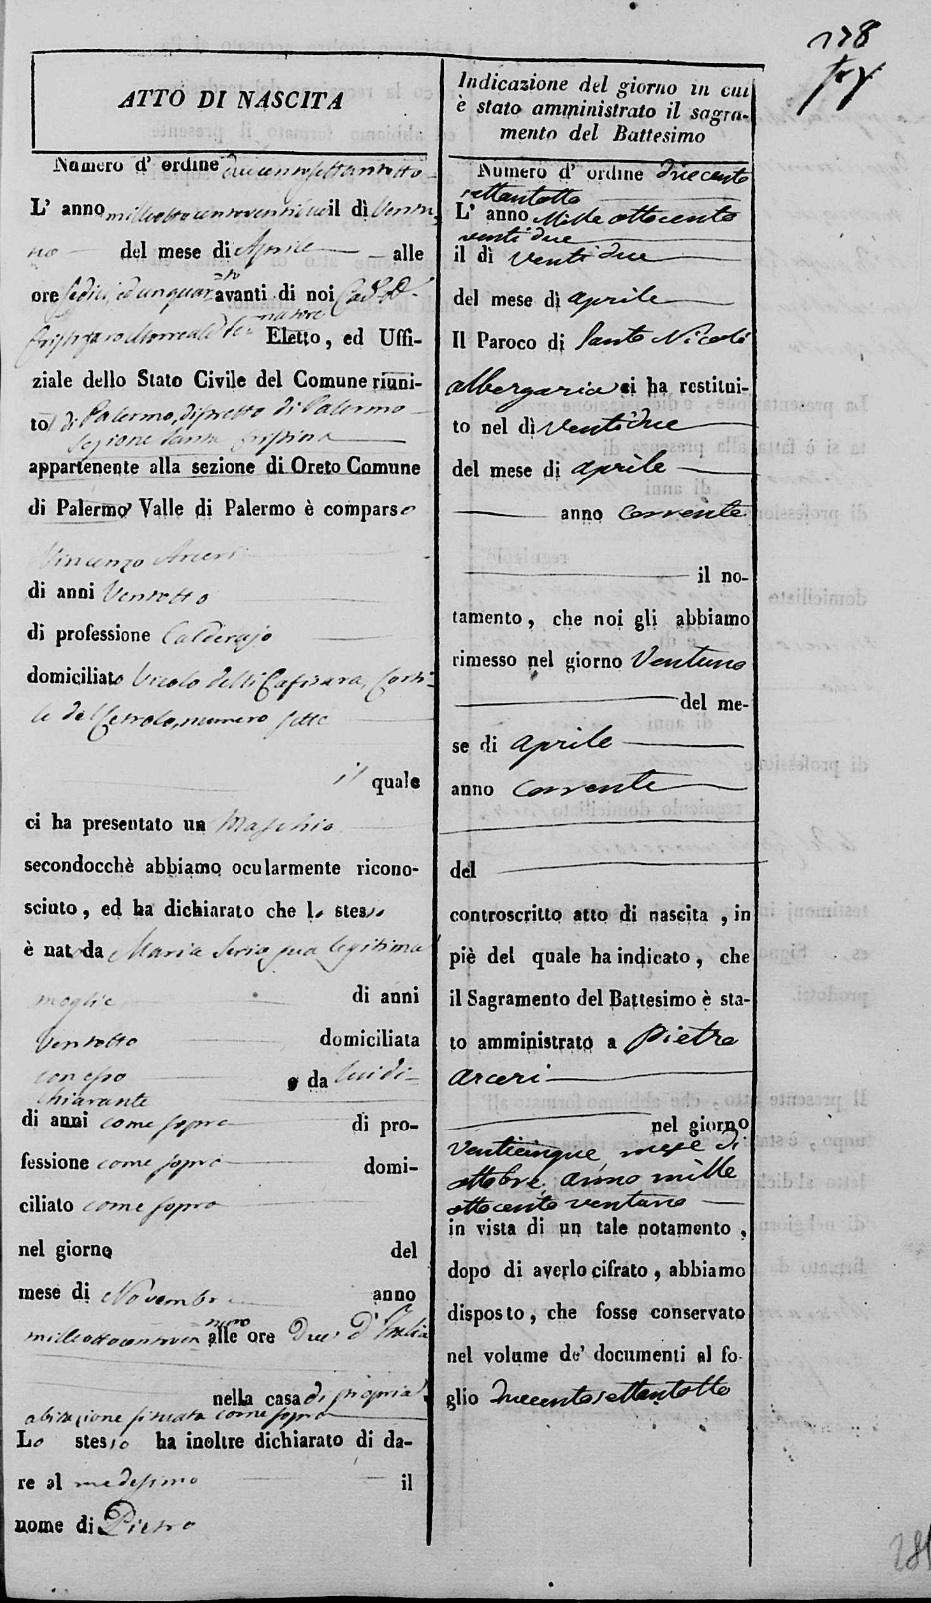 278
ATTO DI NASCITA
Numero d' ordine duecentosettantotto
L' anno milleottocentoventidue il dì Ventu
no del mese di Aprile alle
ore sedici, ed un quar=to avanti di noi Cav. D.
Eletto, ed Uffi-
ziale dello Stato Civile del Comune riuni-
to di Palermo, distretto di Palermo
Sezione Santa Cristina
appartenente alla sezione di Oreto Comune
di Palermo Valle di Palermo è comparso
Vincenzo Arceri
di anni Ventotto
di professione Calderajo
domiciliato Vicolo delli Cafisara, Corti-
le del numero sette
il quale
ci ha presentato un Maschio
secondocchè abbiamo ocularmente ricono-
sciuto, ed ha dichiarato che lo stesso
è nato da Maria Serio sua legitima
moglie di anni
Ventotto domiciliata
con esso e da lui di-
chiarante
di anni come sopra di pro-
fessione come sopra domi-
ciliato come sopra
nel giorno del
mese di Novembre anno
milleottocentoven=tuno alle ore Due d'Italia
nella casa di propria
abitazione situata come sopra
Lo stesso ha inoltre dichiarato di da-
re al medesimo il
nome di Pietro
Indicazione del giorno in cui
è stato amministrato il sagra-
mento del Battesimo
Numero d' ordine duecento
settantotto
L' anno Mille ottocento
venti due
il dì Venti due
del mese di aprile
Il Paroco di Santo Nicolò
albergaria ci ha restitui-
to nel dì Ventidue
del mese di aprile
anno corrente
il no-
tamento, che noi gli abbiamo
rimesso nel giorno Ventuno
del me-
se di aprile
anno corrente
del
controscritto atto di nascita, in
piè del quale ha indicato, che
il Sagramento del Battesimo è sta-
to amministrato a Pietro
Arceri
nel giorno
Venticinque mese di
ottobre anno mille
ottocento ventuno
in vista di un tale notamento,
dopo di averlo cifrato, abbiamo
disposto, che fosse conservato
nel volume de' documenti al fo-
glio duecentosettantotto